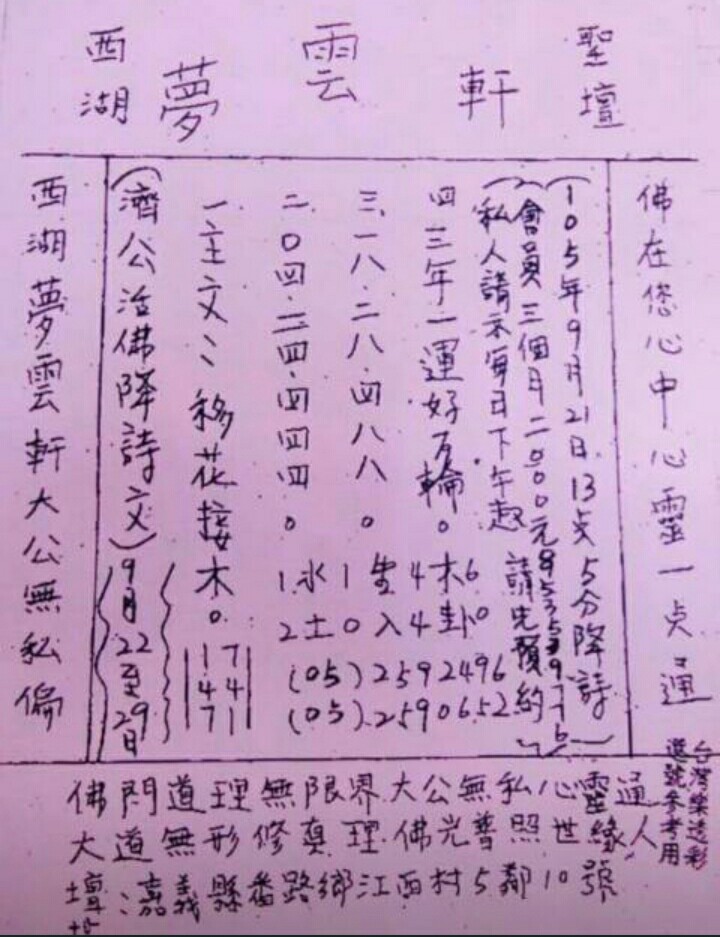 西湖 夢雲軒 聖壇
佛在您心中心靈一点通
(105年9月21日13点5分降詩)
(會員三個月二000元
(私人請示每日下午起 請先預約)
四三年一運好万輪。
三.一八.二八.四八八。
二.0四.二四.四四四。
一、主文:移花接木。
(濟公活佛降詩文)
9月22至29日
西湖夢雲軒大公無私偏
1水1生4木6
2土0入4卦0
(05)2592496
(05)2590652
17
44
71
佛門道理無限界大公無私心靈通
大道無形修真理佛光普照世緣人
壇址:嘉義縣番路鄉江西村5鄰10號
台灣樂透彩
選號參考用